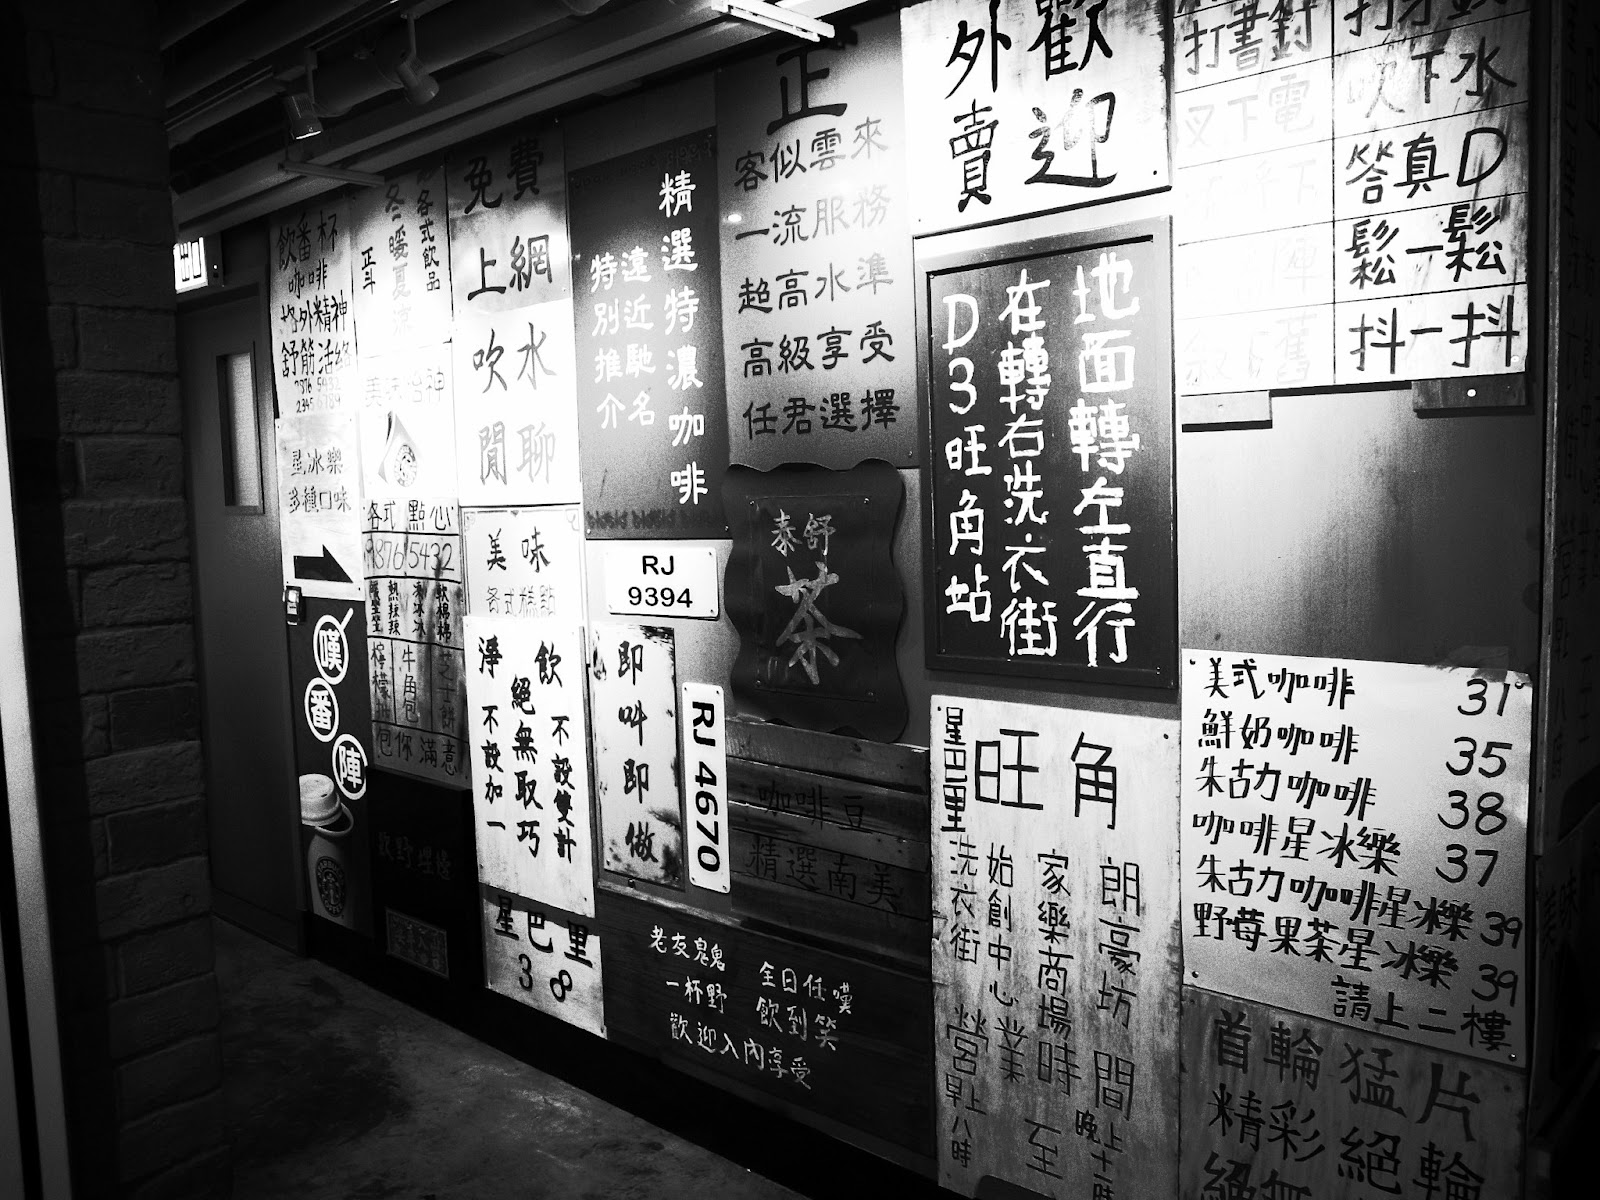 出口
飲番杯
咖啡
格外精神
舒筋活絡
2345 6789
星冰樂
多種口味
嘆
番
陣
各式飲品
冬暖夏涼
正斗
美味
各式點心
9876 5432
熱辣辣
凍冰冰
軟綿綿
檸檬批
牛角包
芝士餅
包你滿意
免費
上網
吹水
閒聊
美味
各式糕點
飲不設雙計
絕無取巧
淨不設加一
星巴里
38
精選特濃咖啡
遠近馳名
特別推介
RJ
9394
即叫即做
RJ 4670
正
客似雲來
一流服務
超高水準
高級享受
任君選擇
泰舒
茶
咖啡豆
精選南美
老友鬼鬼
一杯野
全日任嘆
飲到笑
歡迎入內享受
歡迎
外賣
地面轉左直行
在轉右洗衣街
D3旺角站
星巴里
旺角
朗豪坊
家樂商場
始創中心
洗衣街
營業時間
早上八時
至
晚上十一時
打書釘
吹下水
答真D
鬆一鬆
抖一抖
美式咖啡 31
鮮奶咖啡 35
朱古力咖啡 38
咖啡星冰樂 37
朱古力咖啡星冰樂 39
野莓果茶星冰樂 39
請上二樓
首輪猛片
精彩絕輪